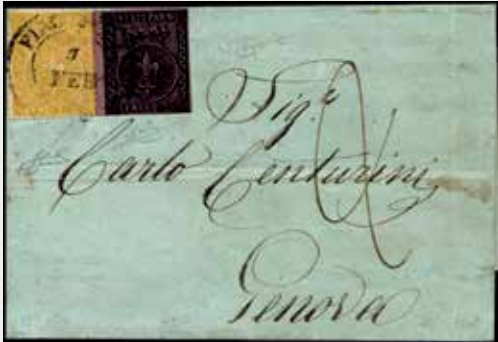 7
FEB
Sig.r
Carlo Centurini
Genova